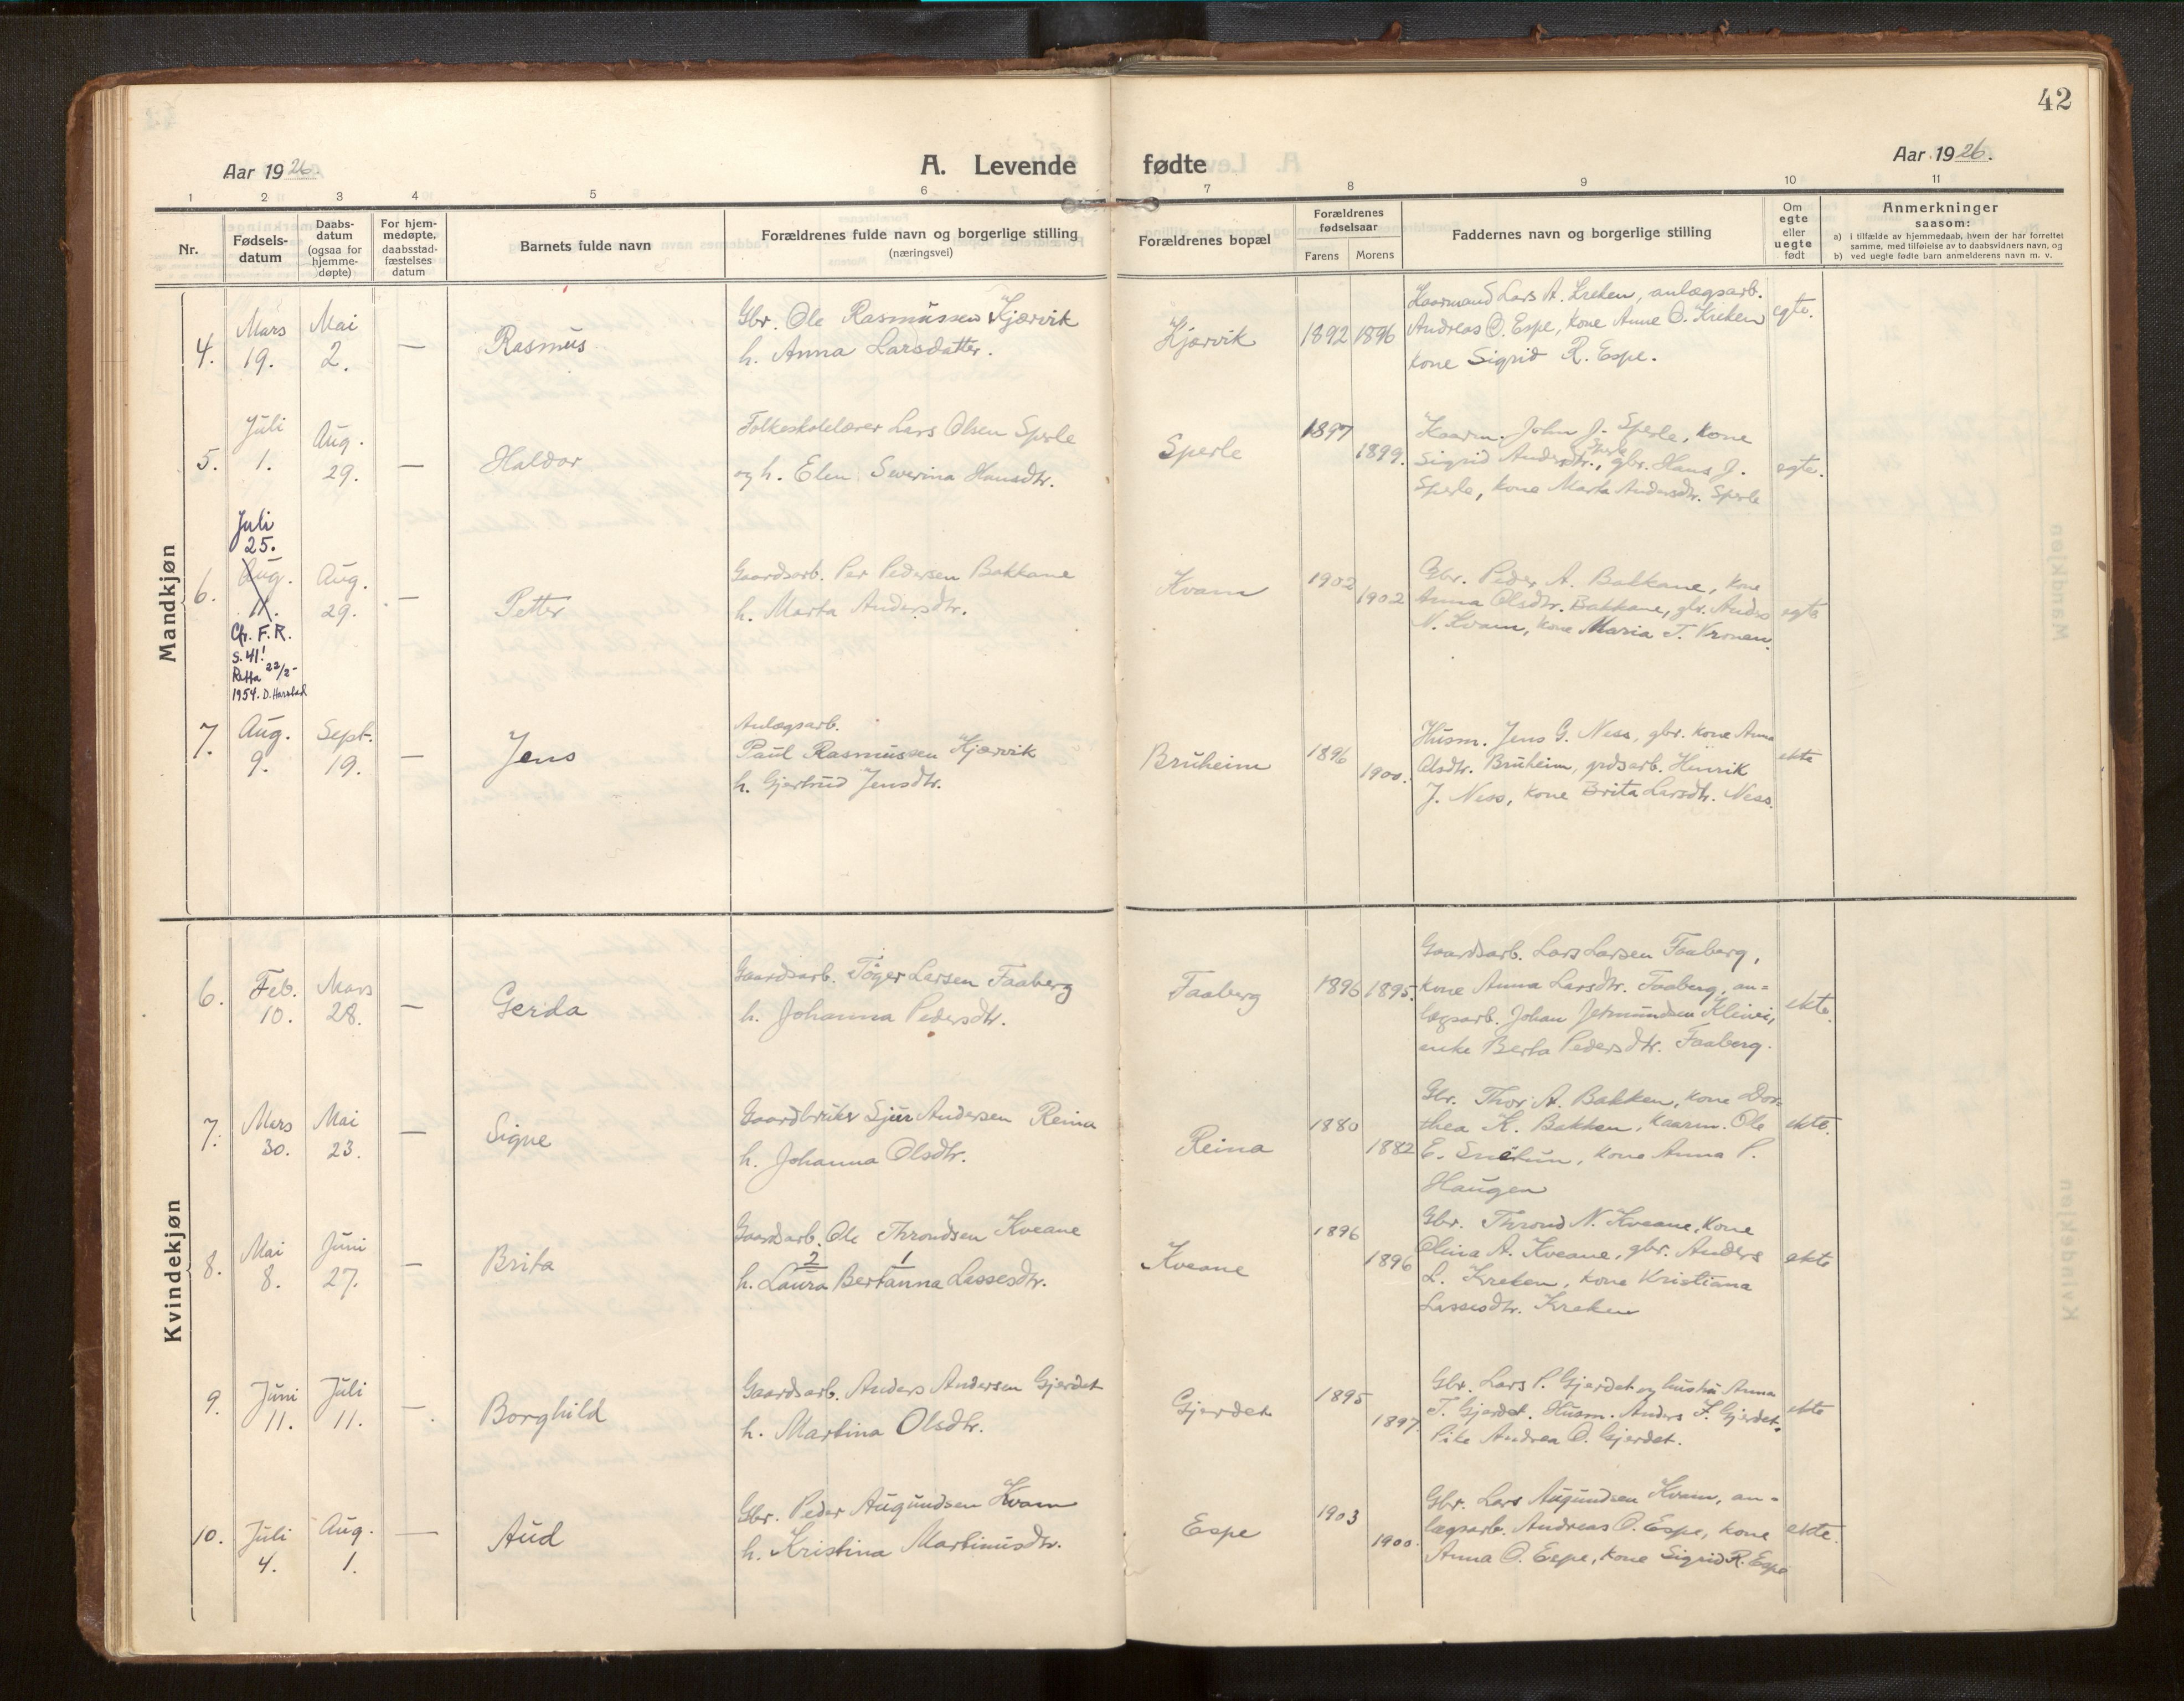 42
Aar 1926.
A. Levende fødte
Aar 1926.
1 2 3 4 5 6 7 8 9 10 11
Nr.
Fødsels-
datum
Daabs-
datum
(ogsaa for
hjemme-
døpte)
For hjem-
medøpte,
daabsstad-
fæstelses
datum
Barnets fulde navn
Forældrenes fulde navn og borgerlige stilling
(næringsvei)
Forældrenes bopæl
Forældrenes
fødselsaar
Farens Morens
Faddernes navn og borgerlige stilling
Om
egte
eller
uegte
født
Anmerkninger
saasom:
a) i tilfælde av hjemmedaab, hvem der har forrettet
samme, med tilføielse av to daabsvidners navn, og
b) ved uegte fødte barn anmelderens navn m. v.
Mandkjøn
4.
Mars
19.
Mai
2.
—
Rasmus
Gbr. Ole Rasmussen Kjærvik
h. Anna Larsdatter.
Kjærvik
1892 1896
Kaarmand Lars A. Kreken, anlægsarb.
Andreas O. Espe, kone Anne O. Kreken
kone Sigrid R. Espe.
egte.
5.
Juli
1.
Aug.
29.
—
Haldor
Folkeskolelærer Lars Olsen Sperle
og h. Elen Severina Hansdtr.
Sperle
1897
1899.
Kaarm. John J. Sperle, kone
Sigrid Andersdtr. Sperle, gbr. Hans J.
Sperle, kone Marta Andersdtr. Sperle
egte.
6.
Juli
25.
Aug.
11.
Cfr. F.R.
S. 41!
Retta 22/2-
1954. D. Harstad
Aug.
29.
—
Petter
Gaardsarb. Per Pedersen Bakkane
h. Marta Andersdtr.
Kvam
1902
1902
Gbr. Peder A. Bakkane, kone
Anna Olsdtr. Bakkane, gbr. Anders
N. Kvam, kone Maria T. Kronen.
egte
7.
Aug.
9.
Sept.
19.
—
Jens
Anlægsarb.
Paul Rasmussen Kjærvik
h. Gjertrud Jensdtr.
Bruheim
1896
1900.
Husm. Jens G. Ness, gbr. kone Anna
Olsdtr. Bruheim, grdsarb. Henrik
J. Ness, kone Brita Larsdtr. Ness.
ekte
Kvindekjøn
6.
Feb.
10.
Mars
28.
—
Gerda
Gaardsarb. Tøger Larsen Faaberg
h. Johanna Pedersdtr.
Faaberg
1896 1895.
Gaardsarb. Lars Larsen Faaberg,
kone Anna Larsdtr. Faaberg, an-
lægsarb. Johan Jetmundsen Kleivi,
enke Berta Pedersdtr. Faaberg.
ekte.
7.
Mars
30.
Mai
23.
—
Signe
Gaardbruker Sjur Andersen Reina
h. Johanna Olsdtr.
Reina
1880
1882
Gbr. Thor A. Bakken, kone Dor-
thea K. Bakken, kaarm. Ole
E. Snetun, kone Anna P.
Haugen
ekte.
8.
Mai
8.
Juni
27.
—
Brita
Gaardsarb. Ole Throndsen Kveane
2 1
h. Laura Bertanna Lassesdtr.
Kveane
1896
1896
Gbr. Thrond N. Kveane, kone
Olina A. Kveane, gbr. Anders
L. Kreken, kone Kristiana
Lassesdtr. Kreken
ekte
9.
Juni
11.
Juli
11.
—
Borghild
Gaardsarb. Anders Andersen Gjerdet
h. Martina Olsdtr.
Gjerdet
1895
1897
Gbr. Lars P. Gjerdet og hustru Anna
T. Gjerdet. Husm. Anders F. Gjerdet.
Pike Andrea O. Gjerdet.
ekte
10.
Juli
4.
Aug.
1.
—
Aud
Gbr. Peder Augundsen Kvam
h. Kristina Martinusdtr.
Espe
1903
1900.
Gbr. Lars Augundsen Kvam, an-
lægsarb. Andreas O. Espe, kone
Anna O. Espe, kone Sigrid R. Espe
ekte.